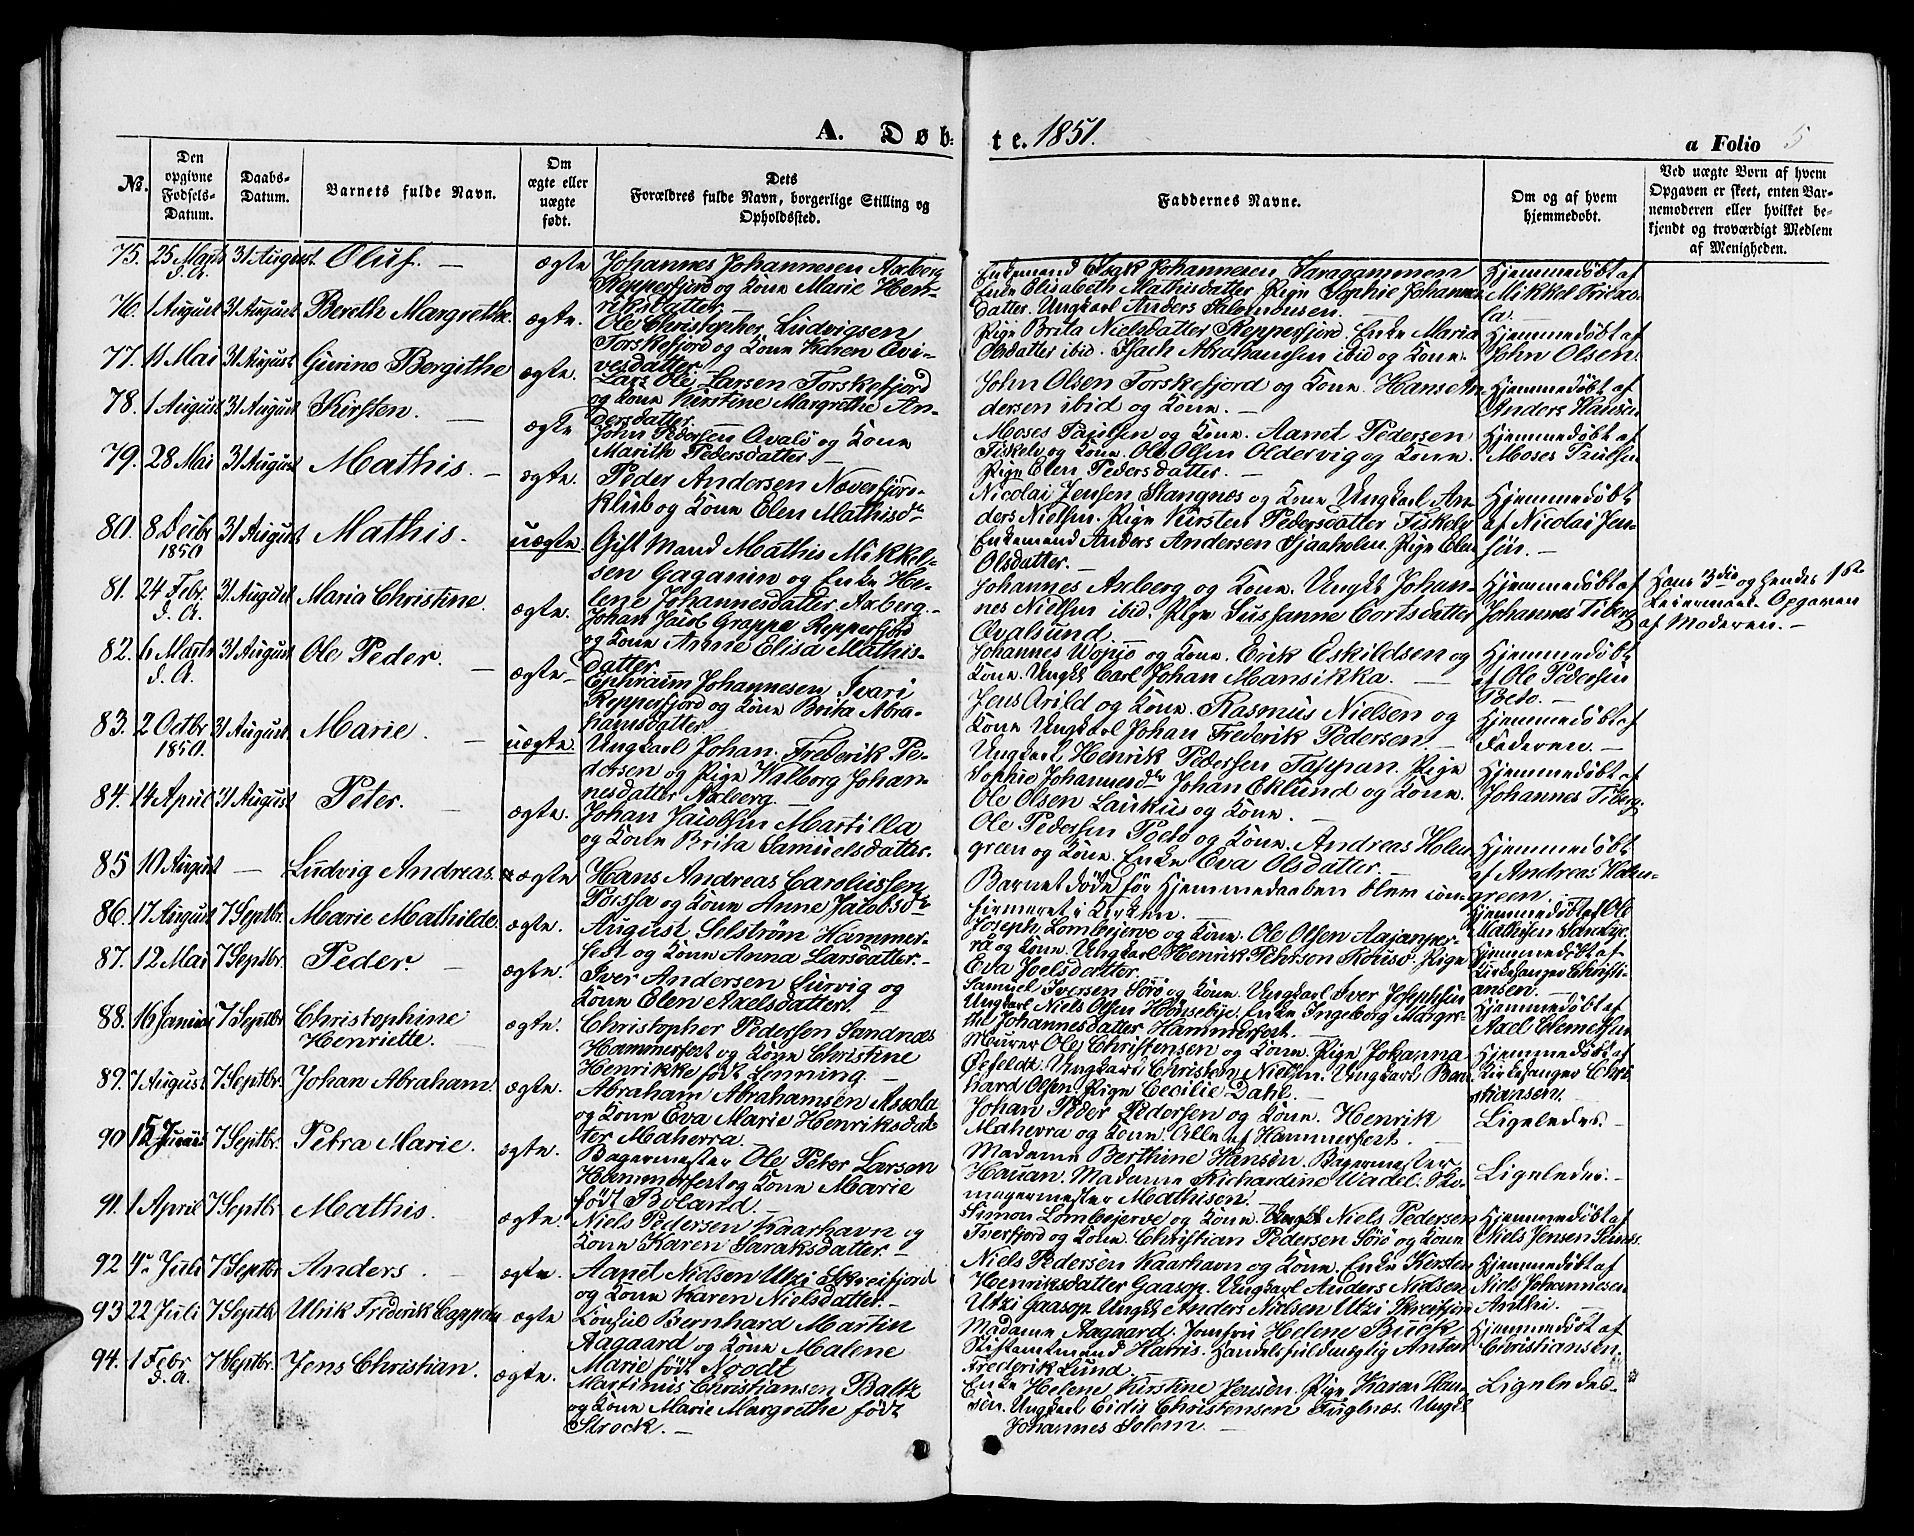 A. Døb-
te. 1851.
a Folio 5
No.
Den opgivne Fødsels-Datum.
Daabs-Datum.
Barnets fulde Navn.
Om ægte eller uægte født.
Dets Forældres fulde Navn, borgerlige Stilling og Opholdssted.
Faddernes Navne.
Om og af hvem hjemmedøbt.
Ved uægte Børn af hvem Opgaven er skeet, enten Barnemoderen eller hvilket bekjendt og troværdigt Medlem af Menigheden.
75. 25 Marts d.A. 31 August Oluf. — ægte
Johannes Johannesen Axberg
Repperfjord og Kone Marie Hen-
riksdatter
Enkemand Johannesen Saragammen
Enke Elisabeth Mathisdatter Pige Sophie Johannes-
datter. Ungkarl Anders Salomonsen.
Hjemmedøbt af
Mikkel
76. 1 August 31 August Bereth Margrethe. ægte.
Ole Christopher Ludvigsen
Torskefjord og Kone Karen Qvi-
vesdatter
Pige Brita Nielsdatter Repperfjord. Enke Maria
Olsdatter ibid. Isach Abrahamsen ibid og Kone.
Hjemmedøbt af
John Olsen.
77. 11 Mai 31 August Gurine Bergithe ægte.
Lars Ole Larsen Torskefjord
og Kone Kirstine Margrethe An-
dersdatter
John Olsen Torskefjord og Kone. Hans An-
dersen ibid og Kone. —
Hjemmedøbt af
Anders Hansen
78. 1 August 31 August Kirsten. — ægte
John Pedersen Qvalø og Kone
Marith Pedersdatter. —
Moses Paulsen og Kone. Aanet Pedersen
Fiskelv og Kone. Ole Olsen Oldervig og Kone.
Pige Elen Pedersdatter. —
Hjemmedøbt af
Moses Paulsen
79. 28 Mai 31 August Mathis. — ægte.
Peder Andersen Næverfjord-
klub og Kone Elen Mathisdr
Nicolai Jensen Stangnæs og Kone. Ungkarl An-
ders Nielsen. Pige Kirsten Pedersdatter Fiskelv
Hjemmedøbt
af Nicolai Jen-
sen. —
80. 8 Decbr 1850 31 August Mathis. uægte.
Gift Mand Mathis Mikkel-
sen Gaganim og Enke He-
lene Johannesdatter Axberg. —
Enkemand Anders Andersen Sjaaholm. Pige Elen
Olsdatter. —
81. 24 Febr d.A. 31 August Maria Christine. ægte.
Johan Jacob Grappe Repperfjord
og Kone Anne Elisa Mathis-
datter
Johannes Axberg og Kone. Ungk Johan-
nes Nielsen ibid. Pige Sussanne Cortsdatter
Qvalsund.
Hjemmedøbt af
Johannes Tiberg
Hans 3die og Hendes 1ste
Leiermaal. Opgaven
af Moderen. —
82. 6 Marts d.A. 31 August Ole Peder. — ægte —
Ephraim Johannesen Ivari
Repperfjord og Kone Brita Abra-
hamsdatter.
Johannes Wopio og Kone. Erik Eskildsen og
Kone. Ungk Carl Johan Mansikka. —
Hjemmedøbt
af Ole Pedersen
83. 2 Octbr 1850. 31 August Marie. — uægte.
Ungkarl Johan Frederik Pe-
dersen og Pige Walborg Johan-
nesdatter Axberg. —
Jens Arild og Kone. Rasmus Nielsen og
Kone. Ungkarl Johan Frederik Pedersen. —
Ungkarl Henrik Pedersen Tappan. Pige
Hjemmedøbt af
Federen. —
84. 14 April 31 August Peter. — ægte.
Johan Jacobsen Martilla
og Kone Brita Samuelsdatter.
Sophie Johannesdr Johan Eklund og Kone.
Ole Olsen Laukus og Kone. —
Hjemmedøbt af
Johannes Tiberg.
85 10 August — Ludvig Andreas. ægte
Hans Andreas Caroliussen
Porssa og Kone Anne Jacobsdr
Ole Pedersen og Kone. Andreas Holm-
green og Kone. Enke Eva Olsdatter. —
Barnet døde før Hjemmedaaben blev con-
firmeret i Kirken.
Hjemmedøbt
af Andreas Holm-
green.
86. 17 August 7 Septbr. Marie Mathilde. ægte.
August Selstrøm Hammer-
fest og Kone Anna Larsdatter. —
Joseph Lombejerve og Kone. Ole Olsen
og Kone. Ungkarl Henrik Pehrson Pige
Eva Joelsdatter.
Hjemmedøbt af Ole
Mathisen
87. 12 Mai 7 Septbr. Peder. — ægte.
Iver Andersen Survig og
Kone Elen Axelsdatter. —
Samuel Iversen Sørø og Kone. Ungkarl Iver Josephsen
Ungkarl Niels Olsen Hønsebye. Enke Ingeborg Margre-
the Johannesdatter Hammerfest. —
Hjemmedøbt af
Kirkesanger Christi-
ansen.
88. 16 Januar 7 Septbr Christophine
Henriette. — ægte.
Christopher Pedersen Sandnæs
Hammerfest og Kone Christine
Henrikke født Lenning. —
Murer Ole Christensen og Kone. Pige Johanna
Øefeldt. Ungkarl Christen Nielsen. Ungkarl Bern-
hard Olsen. Pige Cecilie Dahl. —
Hjemmedøbt af
Axel Clemetsen
89. 7 August 7 Septbr. Johan Abraham. ægte.
Abraham Abrahamsen Assola
og Kone Eva Marie Henriksdat-
ter Maherra.
Johan Peder Pedersen og Kone. Henrik
Maherra og Kone. Alle af Hammerfest. —
Hjemmedøbt af
Kirkesanger Chri-
stiansen.
90 15 7 Septbr. Petra Marie. ægte.
Bagermester Ole Peter Larsen
Hammerfest og Kone Marie
født Boland. —
Madame Berthine Hansen. Bagermester
Hauan. Madame Richardine Wadel. Sko-
magermester Mathisen.
Ligeledes. —
91. 1 April 7 Septbr. Mathis. ægte.
Niels Pedersen Kaarhavn og
Kone Karen Saraksdatter. —
Simon Lombejerve og Kone. Ungk Niels Pedersen
Tverfjord og Kone. Christian Pedersen Sørø og Kone
Ligeledes. —
Hjemmedøbt af
Niels Jensen
92 4de Juli 7 Septbr Anders. — ægte.
Aanet Nielsen Utzi Skreifjord
og Kone Karen Nielsdatter. —
Niels Pedersen Kaarhavn og Kone. Enke Kirsten
Henriksdatter Gaasop. Ungkarl Anders Nielsen
Utzi Gaasop. Ungk Anders Nielsen Utzi Skreifjord
Hjemmedøbt af
Niels Johannesen
Anthi. —
93 22 Juli 7 Septbr Ulrik Frederik Cappelen ægte
Consul Bernhard Martin
Aagaard og Kone Malene
Marie født Noodt
Madame Aagaard. Jomfru Helene Buck
Stiftamtmand Harris. Handelsfuldmægtig Anton
Frederik Lund.
Hjemmedøbt af
Christiansen.
94. 1 Febr d.A. 7 Septbr. Jens Christian. ægte.
Martinus Christiansen Baltz
og Kone Marie Margrethe født
Strock. —
Enke Helene Kirstine Jensen. Pige Karen Han-
sen. Ungkarl Eidis Christensen Fuglnæs. Ungk
Johannes Solem. —
Ligeledes.